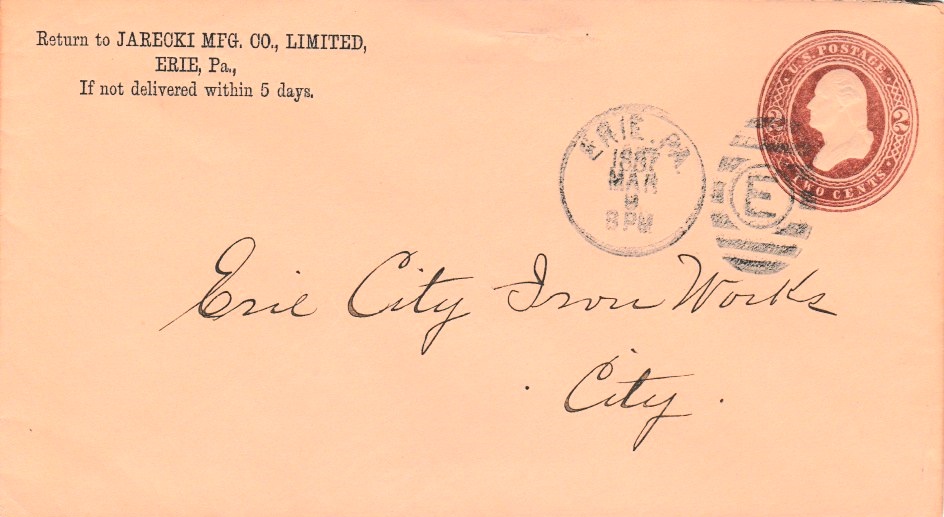 Return to JARECKI MFG. CO., LIMITED,
ERIE, Pa.,
If not delivered within 5 days.
U.S. POSTAGE
2 2
TWO CENTS
ERIE, PA.
1887
MAR
8PM
E
Erie City Iron Works
City.